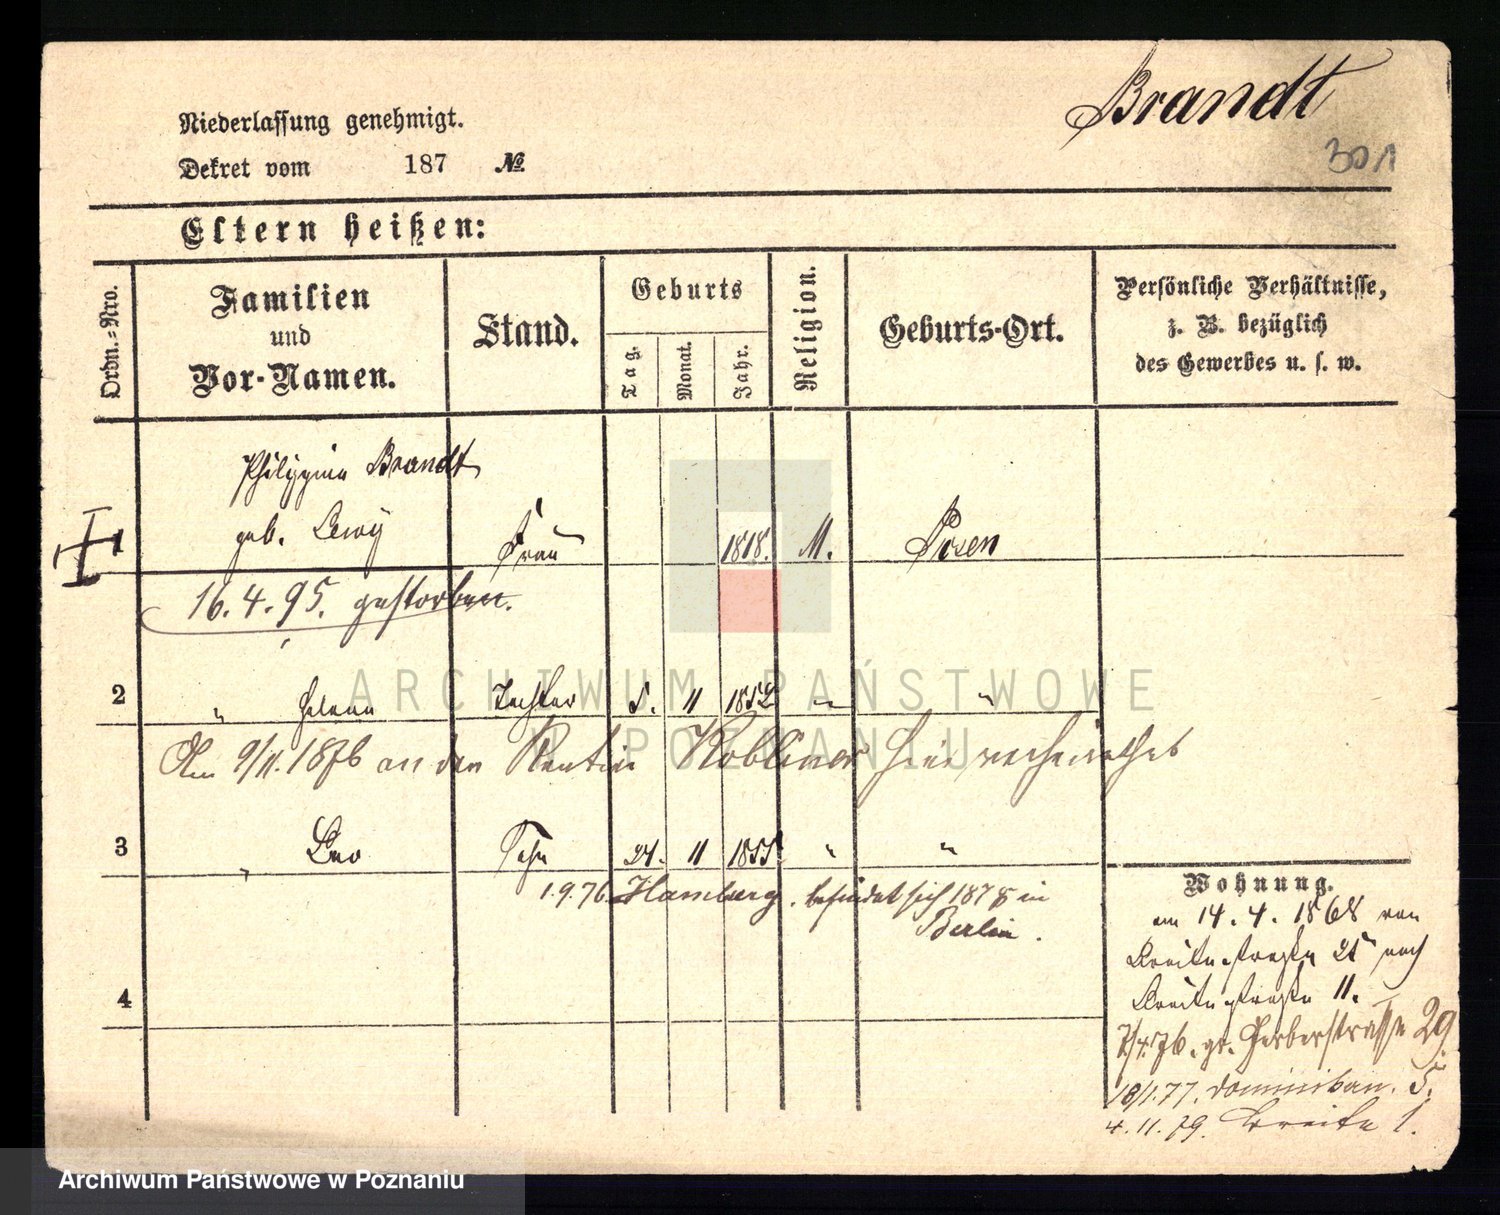 Brandt
301
Niederlassung genehmigt.
Dekret vom 187 №
Eltern heißen:
Ordn.-Nro.
Familien
und
Vor-Namen.
Stand.
Geburts
Tag.
Monat.
Jahr.
Religion.
Geburts-Ort.
Persönliche Verhältnisse,
z. B. bezüglich
des Gewerbes u. s. w.
Philippine Brandt
1 geb. Lewy Frau 1818. M. Posen
16.4.95. gestorben.
2 " Helene Tochter 5. 11 1852 " "
Am 9/11. 1876 an den Rentier Kobliner hier verheirathet
3 " Leo Sohn 24. 11 1855 " "
1.9.76. Hamburg. befindet sich 1878 in
Berlin.
4
Wohnung.
am 14.4.1868 von
Breitestraße 25 nach
Breitestraße 11.
7/4.76. gr. Gerberstrasse 29.
18/1.77. Dominikan. 5.
4.11.79. Breite 1.
ARCHIWUM PAŃSTWOWE
W POZNANIU
Archiwum Państwowe w Poznaniu